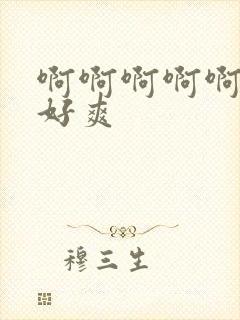 啊啊啊啊啊
好爽
穆三生